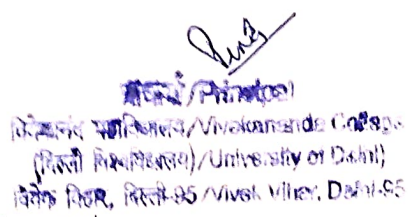 प्राचार्य/Principal
विवेकानन्द महाविद्यालय/Vivekananda College
(दिल्ली विश्वविद्यालय)/University of Delhi)
विवेक विहार, दिल्ली-95/Vivek Vihar, Delhi-95